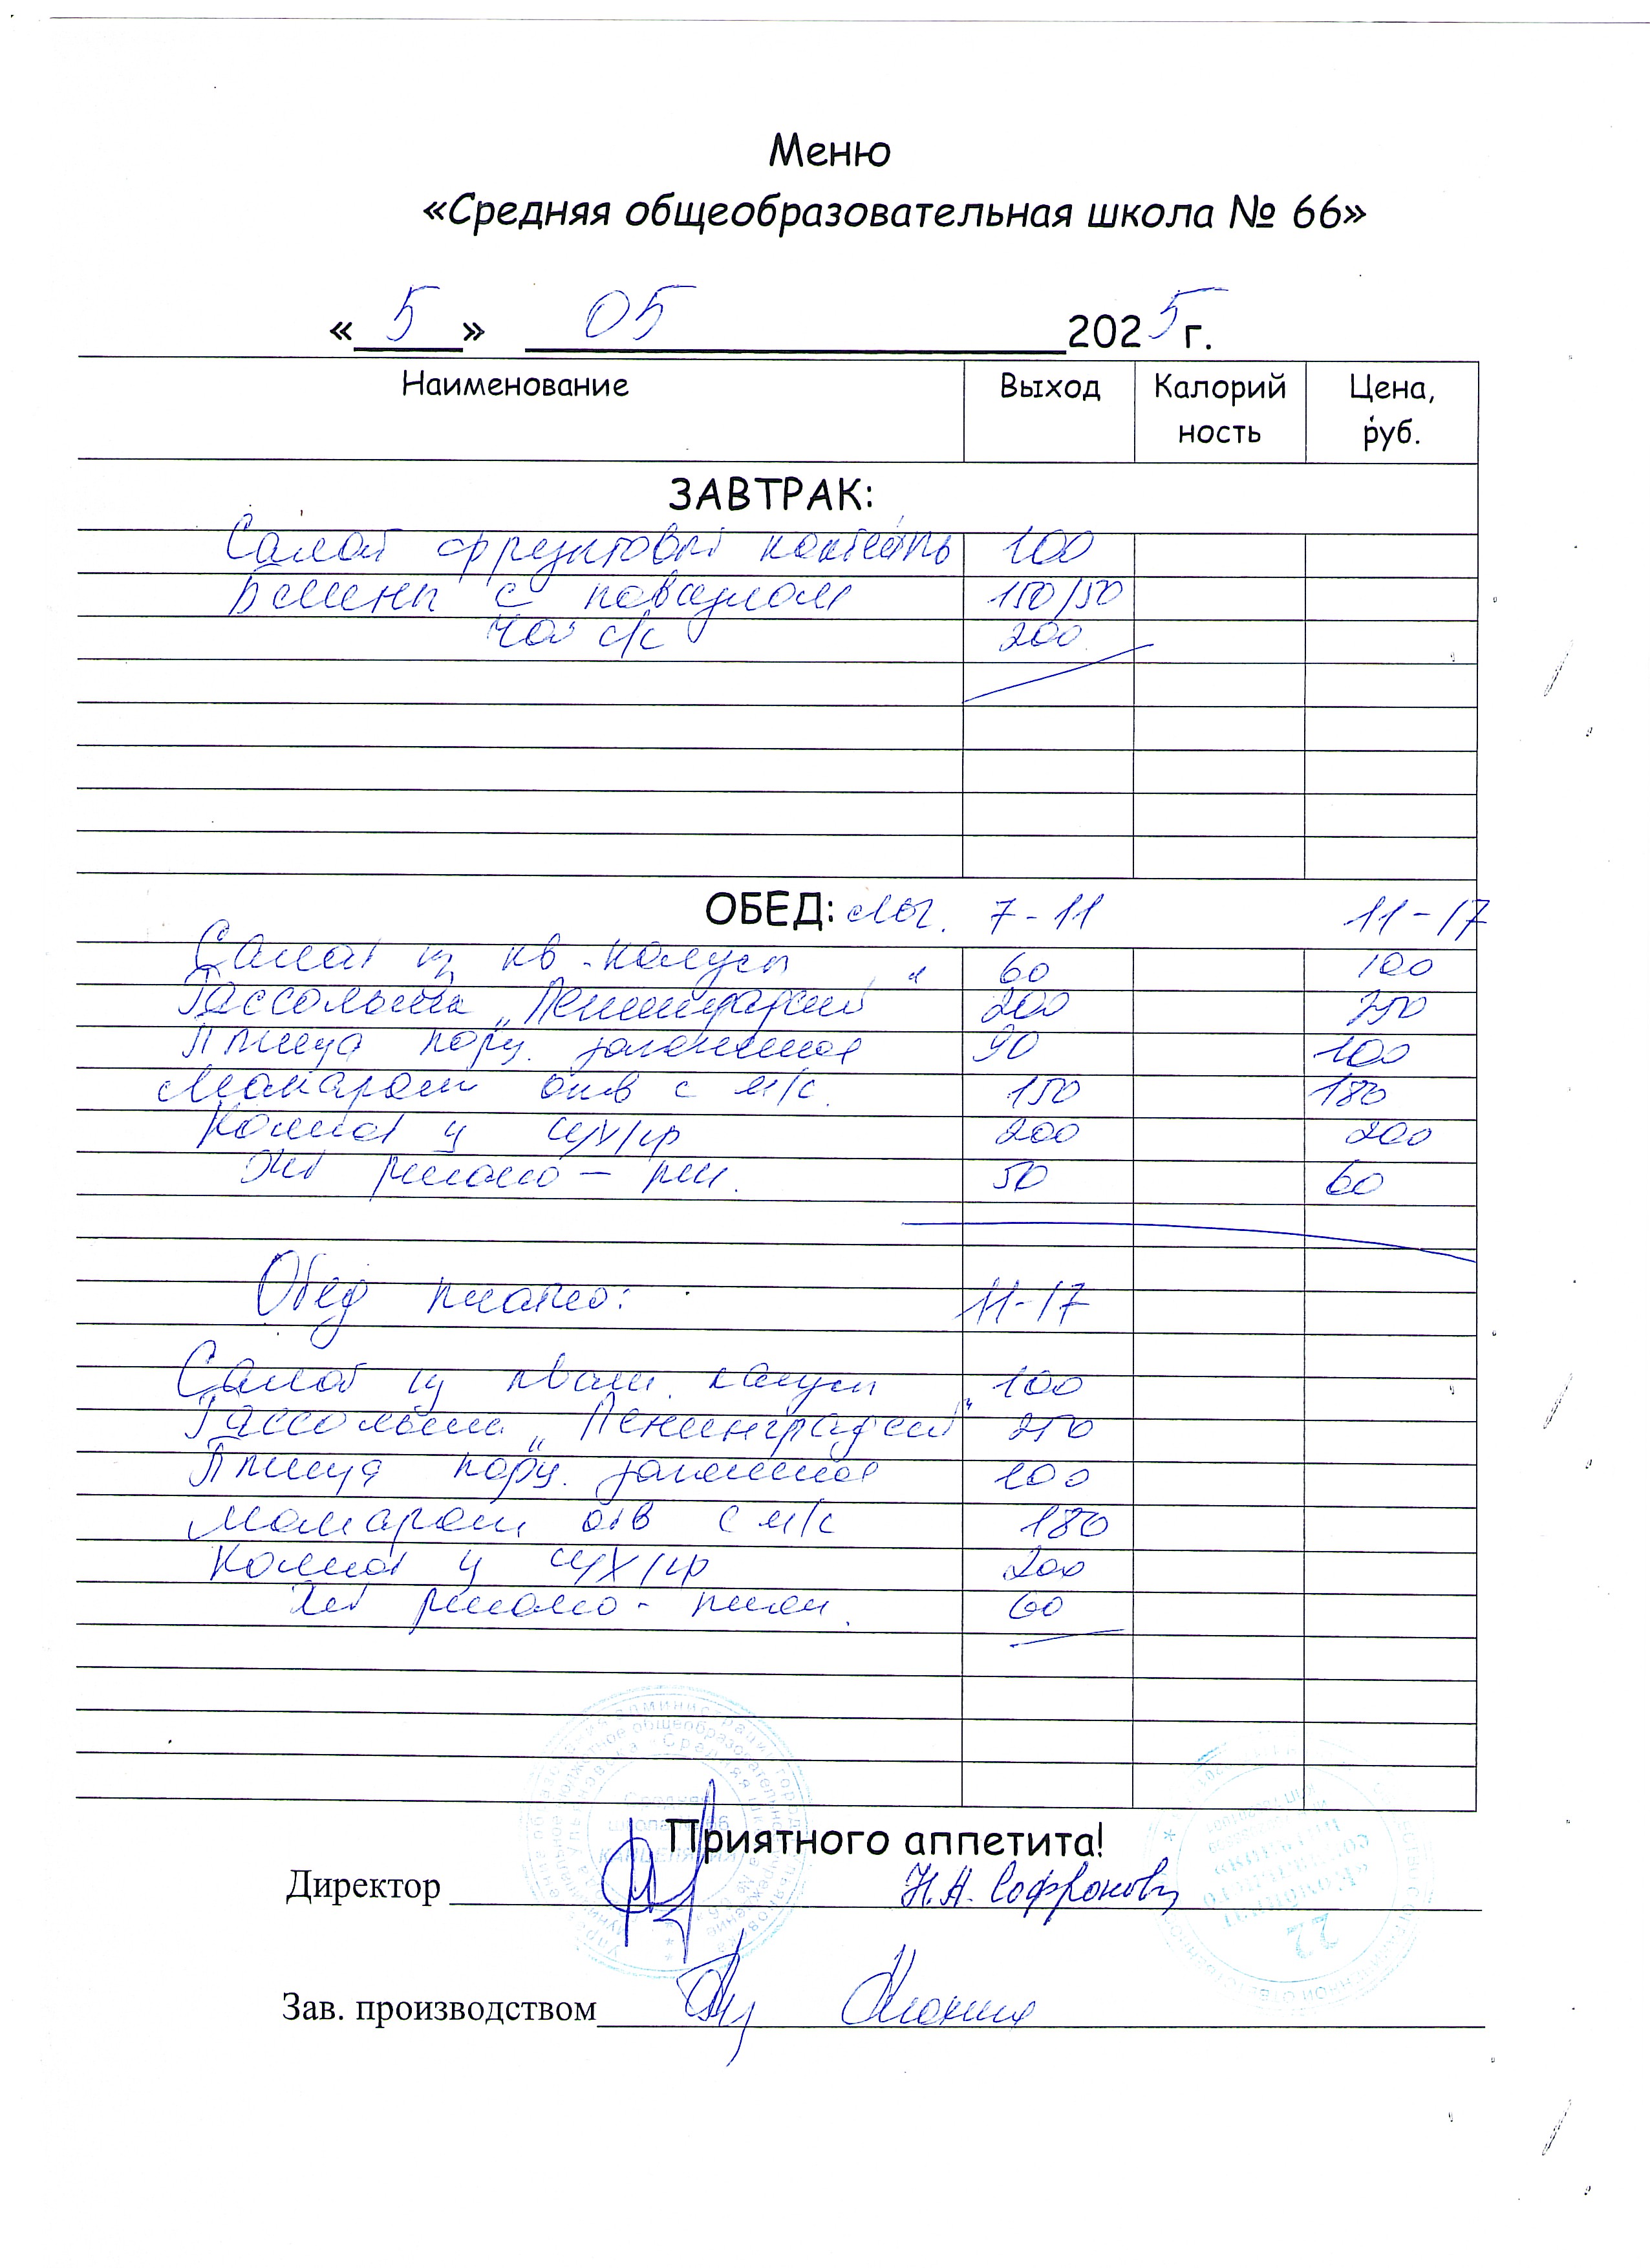 Меню
«Средняя общеобразовательная школа № 66»
« 5 » 05 2025 г.
Наименование Выход Калорий Цена,
ность руб.
ЗАВТРАК:
Салат фруктовый коктейль 100
Блины с повидлом 150/50
Чай с/с 200
ОБЕД: 7-11 11-17
Салат из кв. капусты 60 100
Рассольник „Ленинградский" 200 250
Птица порц. запеченная 90 100
Макароны отв с м/с. 150 180
Компот из сух/фр 200 200
Хлеб ржано - пш. 50 60
Обед платно: 11-17
Салат из кваш. капусты 100
Рассольник „Ленинградский" 250
Птица порц. запеченная 100
Макароны отв с м/с 180
Компот из сух/фр 200
Хлеб ржано - пшен. 60
Приятного аппетита!
Директор Н.А. Софронова
Зав. производством
22